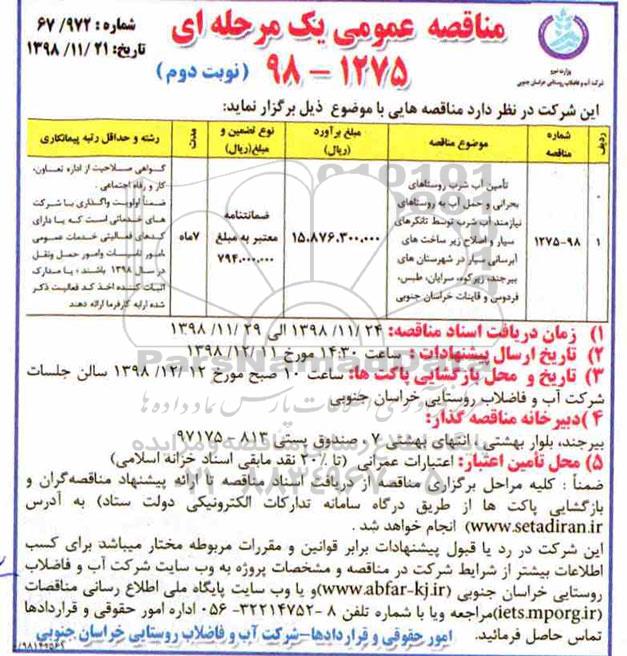 شماره : ۶۷/۹۷۲
تاریخ: ۱۳۹۸/۱۱/۲۱
مناقصه عمومی یک مرحله ای
۹۸ – ۱۲۷۵ (نوبت دوم)
وزارت نیرو
شرکت آب و فاضلاب روستایی خراسان جنوبی
این شرکت در نظر دارد مناقصه هایی با موضوع ذیل برگزار نماید:
ردیف
شماره مناقصه
موضوع مناقصه
مبلغ برآورد (ریال)
نوع تضمین و مبلغ(ریال)
مدت
رشته و حداقل رتبه پیمانکاری
۱
۱۲۷۵-۹۸
تأمین آب شرب روستاهای
بحرانی و حمل آب به روستاهای
نیازمند آب شرب توسط تانکرهای
سیار و اصلاح زیر ساخت های
آبرسانی سیار در شهرستان های
بیرجند، زیرکوه، سرایان، طبس،
فردوس و قاینات خراسان جنوبی
۱۵.۸۷۶.۳۰۰.۰۰۰
ضمانتنامه
معتبر به مبلغ
۷۹۴.۰۰۰.۰۰۰
۷ماه
گواهی صلاحیت از اداره تعاون،
کار و رفاه اجتماعی .
ضمناً اولویت واگذاری با شرکت
های خدماتی است که یا دارای
کدهای فعالیتی خدمات عمومی
،امور تاسیسات وامور حمل ونقل
در سال ۱۳۹۸ باشند ؛ یا مدارک
اثبات کننده اخذ کد فعالیت ذکر
شده ارایه کارفرما ارائه دهند
۱) زمان دریافت اسناد مناقصه: ۲۴ /۱۱/ ۱۳۹۸ الی ۲۹ /۱۱/ ۱۳۹۸
۲) تاریخ ارسال پیشنهادات : ساعت ۱۴:۳۰ مورخ ۱۳۹۸/۱۲/۱۱
۳) تاریخ و محل بازگشایی پاکت ها: ساعت ۱۰ صبح مورخ ۱۳۹۸/۱۲/۱۲ سالن جلسات
شرکت آب و فاضلاب روستایی خراسان جنوبی
۴)دبیرخانه مناقصه گذار:
بیرجند، بلوار بهشتی ، انتهای بهشتی ۷ . صندوق پستی ۸۱۳ – ۹۷۱۷۵
۵) محل تأمین اعتبار: اعتبارات عمرانی (تا ۲۰٪ نقد مابقی اسناد خزانه اسلامی)
ضمناً : کلیه مراحل برگزاری مناقصه از دریافت اسناد مناقصه تا ارائه پیشنهاد مناقصه‌گران و
بازگشایی پاکت ها از طریق درگاه سامانه تدارکات الکترونیکی دولت ستاد) به آدرس
www.setadiran.ir) انجام خواهد شد.
این شرکت در رد یا قبول پیشنهادات برابر قوانین و مقررات مربوطه مختار میباشد برای کسب
اطلاعات بیشتر از شرایط شرکت در مناقصه و مشخصات پروژه به وب سایت شرکت آب و فاضلاب
روستایی خراسان جنوبی (www.abfar-kj.ir)و یا وب سایت پایگاه ملی اطلاع رسانی مناقصات
(iets.mporg.ir)مراجعه ویا با شماره تلفن ۸ -۳۲۲۱۴۷۵۲- ۰۵۶ اداره امور حقوقی و قراردادها
تماس حاصل فرمائید. امور حقوقی و قراردادها–شرکت آب و فاضلاب روستایی خراسان جنوبی
ParsNamadData